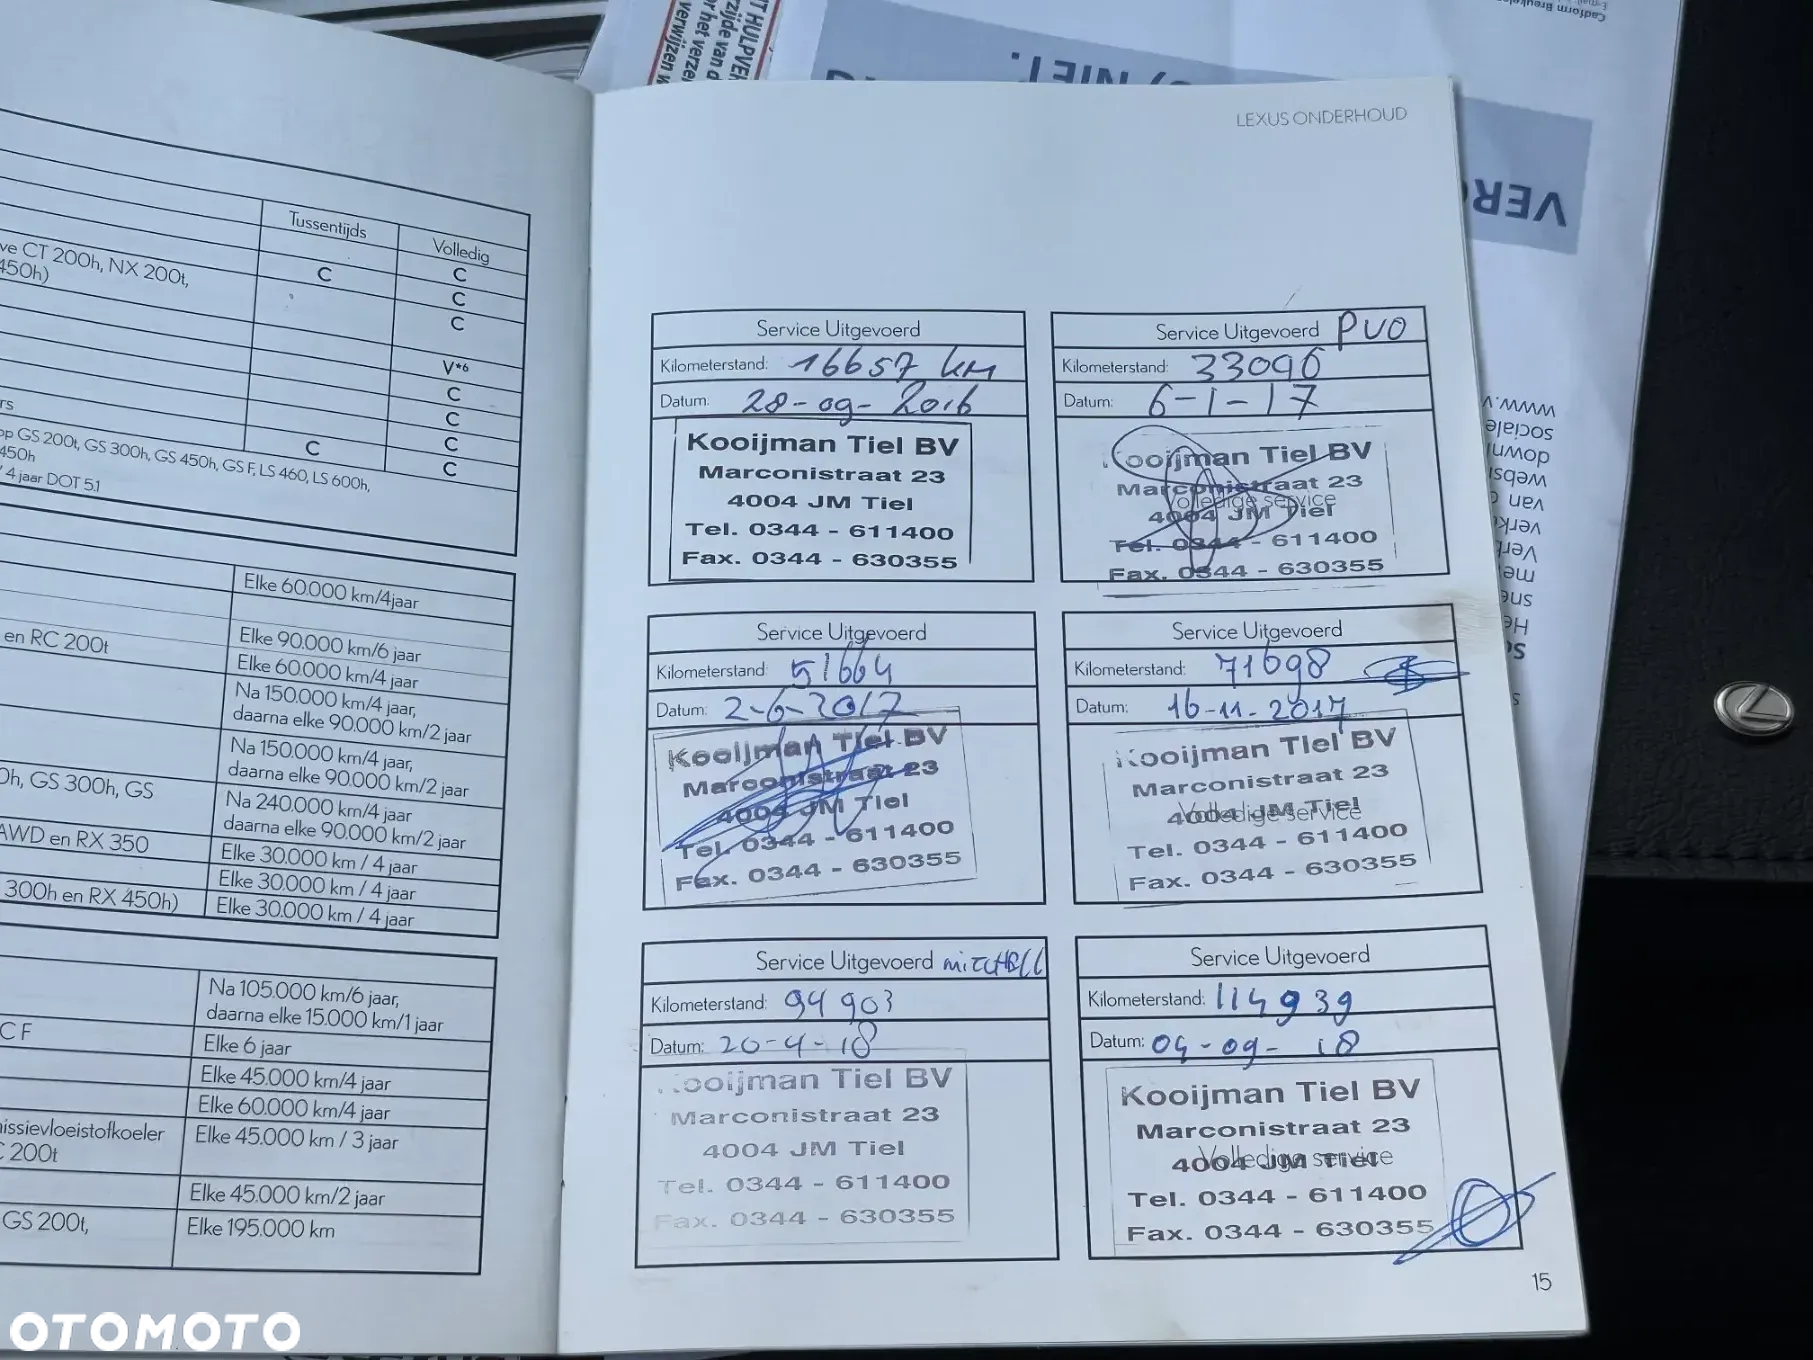 T HULPVER
zijde van d
r het verzek
verwijzen v
Cadform Breukele
) NIET.
VERG
www.v
sociale
downl
websi
van d
verk
Verb
met
sne
He
LEXUS ONDERHOUD
Tussentijds
Volledig
ve CT 200h, NX 200t,
450h)
C
C
C
C
V*6
C
C
C
C
C
rs
op GS 200t, GS 300h, GS 450h, GS F, LS 460, LS 600h,
450h
/ 4 jaar DOT 5.1
Elke 60.000 km/4 jaar
Elke 90.000 km/6 jaar
en RC 200t
Elke 60.000 km/4 jaar
Na 150.000 km/4 jaar,
daarna elke 90.000 km/2 jaar
Na 150.000 km/4 jaar,
daarna elke 90.000 km/2 jaar
0h, GS 300h, GS
Na 240.000 km/4 jaar
daarna elke 90.000 km/2 jaar
AWD en RX 350
Elke 30.000 km / 4 jaar
Elke 30.000 km / 4 jaar
300h en RX 450h)
Elke 30.000 km / 4 jaar
Na 105.000 km/6 jaar,
daarna elke 15.000 km/1 jaar
C F
Elke 6 jaar
Elke 45.000 km/4 jaar
Elke 60.000 km/4 jaar
issievloeistofkoeler
C 200t
Elke 45.000 km / 3 jaar
Elke 45.000 km/2 jaar
GS 200t,
Elke 195.000 km
Service Uitgevoerd
Kilometerstand: 16657 KM
Datum: 28-09-2016
Kooijman Tiel BV
Marconistraat 23
4004 JM Tiel
Tel. 0344 - 611400
Fax. 0344 - 630355
Service Uitgevoerd PVO
Kilometerstand: 33096
Datum: 6-1-17
Kooijman Tiel BV
Marconistraat 23
Volledige service
4004 JM Tiel
Tel. 0344 - 611400
Fax. 0344 - 630355
Service Uitgevoerd
Kilometerstand: 51664
Datum: 2-6-2017
Kooijman Tiel BV
Marconistraat 23
4004 JM Tiel
Tel. 0344 - 611400
Fax. 0344 - 630355
Service Uitgevoerd
Kilometerstand: 71698
Datum: 16-11-2017
Kooijman Tiel BV
Marconistraat 23
4004 JM Tiel
Volledige service
Tel. 0344 - 611400
Fax. 0344 - 630355
Service Uitgevoerd mitchell
Kilometerstand: 94903
Datum: 20-4-18
Kooijman Tiel BV
Marconistraat 23
4004 JM Tiel
Tel. 0344 - 611400
Fax. 0344 - 630355
Service Uitgevoerd
Kilometerstand: 114939
Datum: 04-09-18
Kooijman Tiel BV
Marconistraat 23
4004 JM Tiel
Volledige service
Tel. 0344 - 611400
Fax. 0344 - 630355
15
OTOMOTO